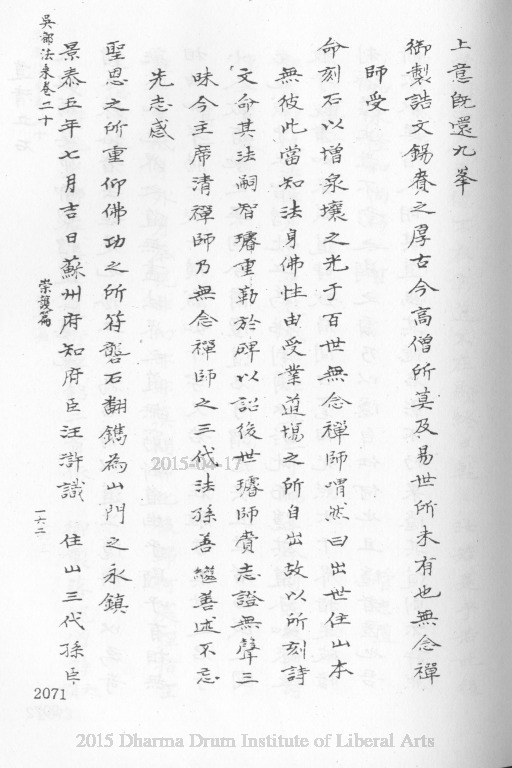 上意既還九峯
御製誥文錫賚之厚古今高僧所莫及易世所未有也無念禪
師受
命刻石以增泉壤之光于百世無念禪師喟然曰出世住山本
無彼此當知法身佛性由受業道場之所自出故以所刻詩
文命其法嗣智璿重勒於碑以詔後世璿師賚志證無聲三
昧今主席清禪師乃無念禪師之三代法孫善繼善述不忘
先志感
聖恩之所重仰佛功之所符礱石翻鐫為山門之永鎮
景泰五年七月吉日蘇州府知府臣汪滸識　住山三代孫臣
吳都法乘卷二十
崇護篇
一六二
2071
2015-04-17
2015 Dharma Drum Institute of Liberal Arts